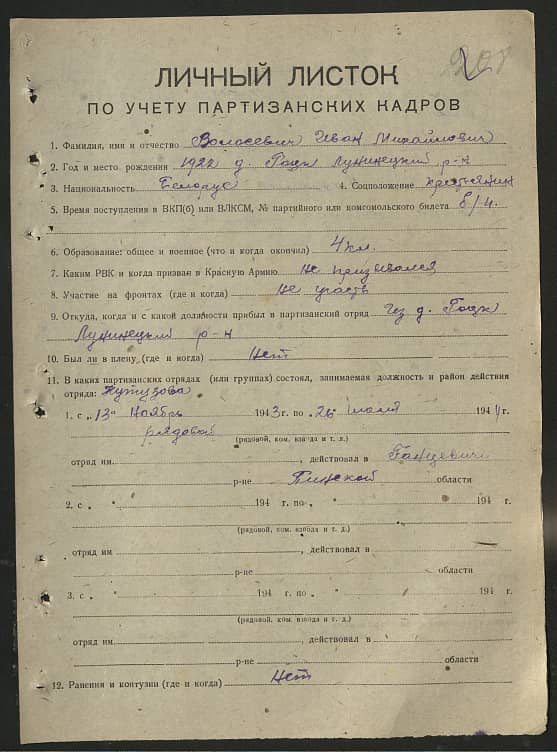 ЛИЧНЫЙ ЛИСТОК
ПО УЧЕТУ ПАРТИЗАНСКИХ КАДРОВ
1. Фамилия, имя и отчество Волосевич Иван Михайлович
2. Год и место рождения 1922 д. Гоцк Лунинецкий р-н
3. Национальность Белорус 4. Соцположение крестьянин
5. Время поступления в ВКП(б) или ВЛКСМ, № партийного или комсомольского билета б/п.
6. Образование: общее и военное (что и когда окончил) 4 кл.
7. Каким РВК и когда призван в Красную Армию Не призывался
8. Участие на фронтах (где и когда) Не участв
9. Откуда, когда и с какой должности прибыл в партизанский отряд Из д. Гоцк
Лунинецкий р-н
10. Был ли в плену (где и когда) Нет
11. В каких партизанских отрядах (или группах) состоял, занимаемая должность и район действия
отряда: Кутузова
1. с „13" Ноябрь 1943 г. по „26 июля 1944 г.
рядовой
(рядовой, ком. взвода и т. д.)
отряд им. , действовал в Ганцевичи
р-не Пинской области
2. с „ " 194 г. по „ " 194 г.
(рядовой, ком. взвода и т. д.)
отряд им. , действовал в
р-не области
3. с „ " 194 г. по „ " 194 г.
(рядовой, ком. взвода и т. д.)
отряд им. , действовал в
р-не области
12. Ранения и контузии (где и когда) Нет